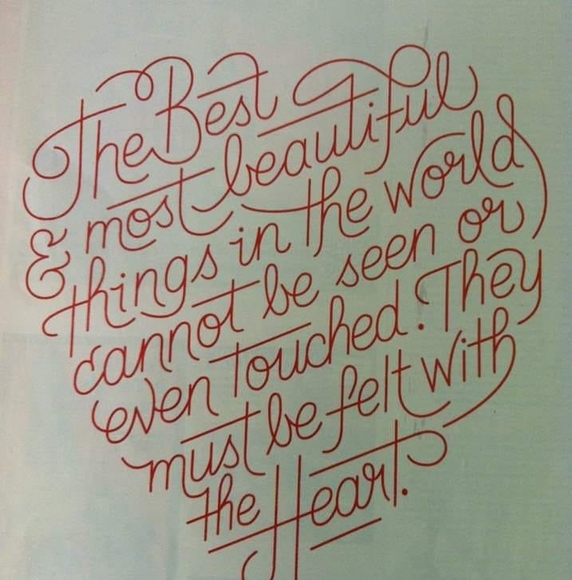 The Best
& most beautiful
things in the world
cannot be seen or
even touched. They
must be felt with
the Heart.